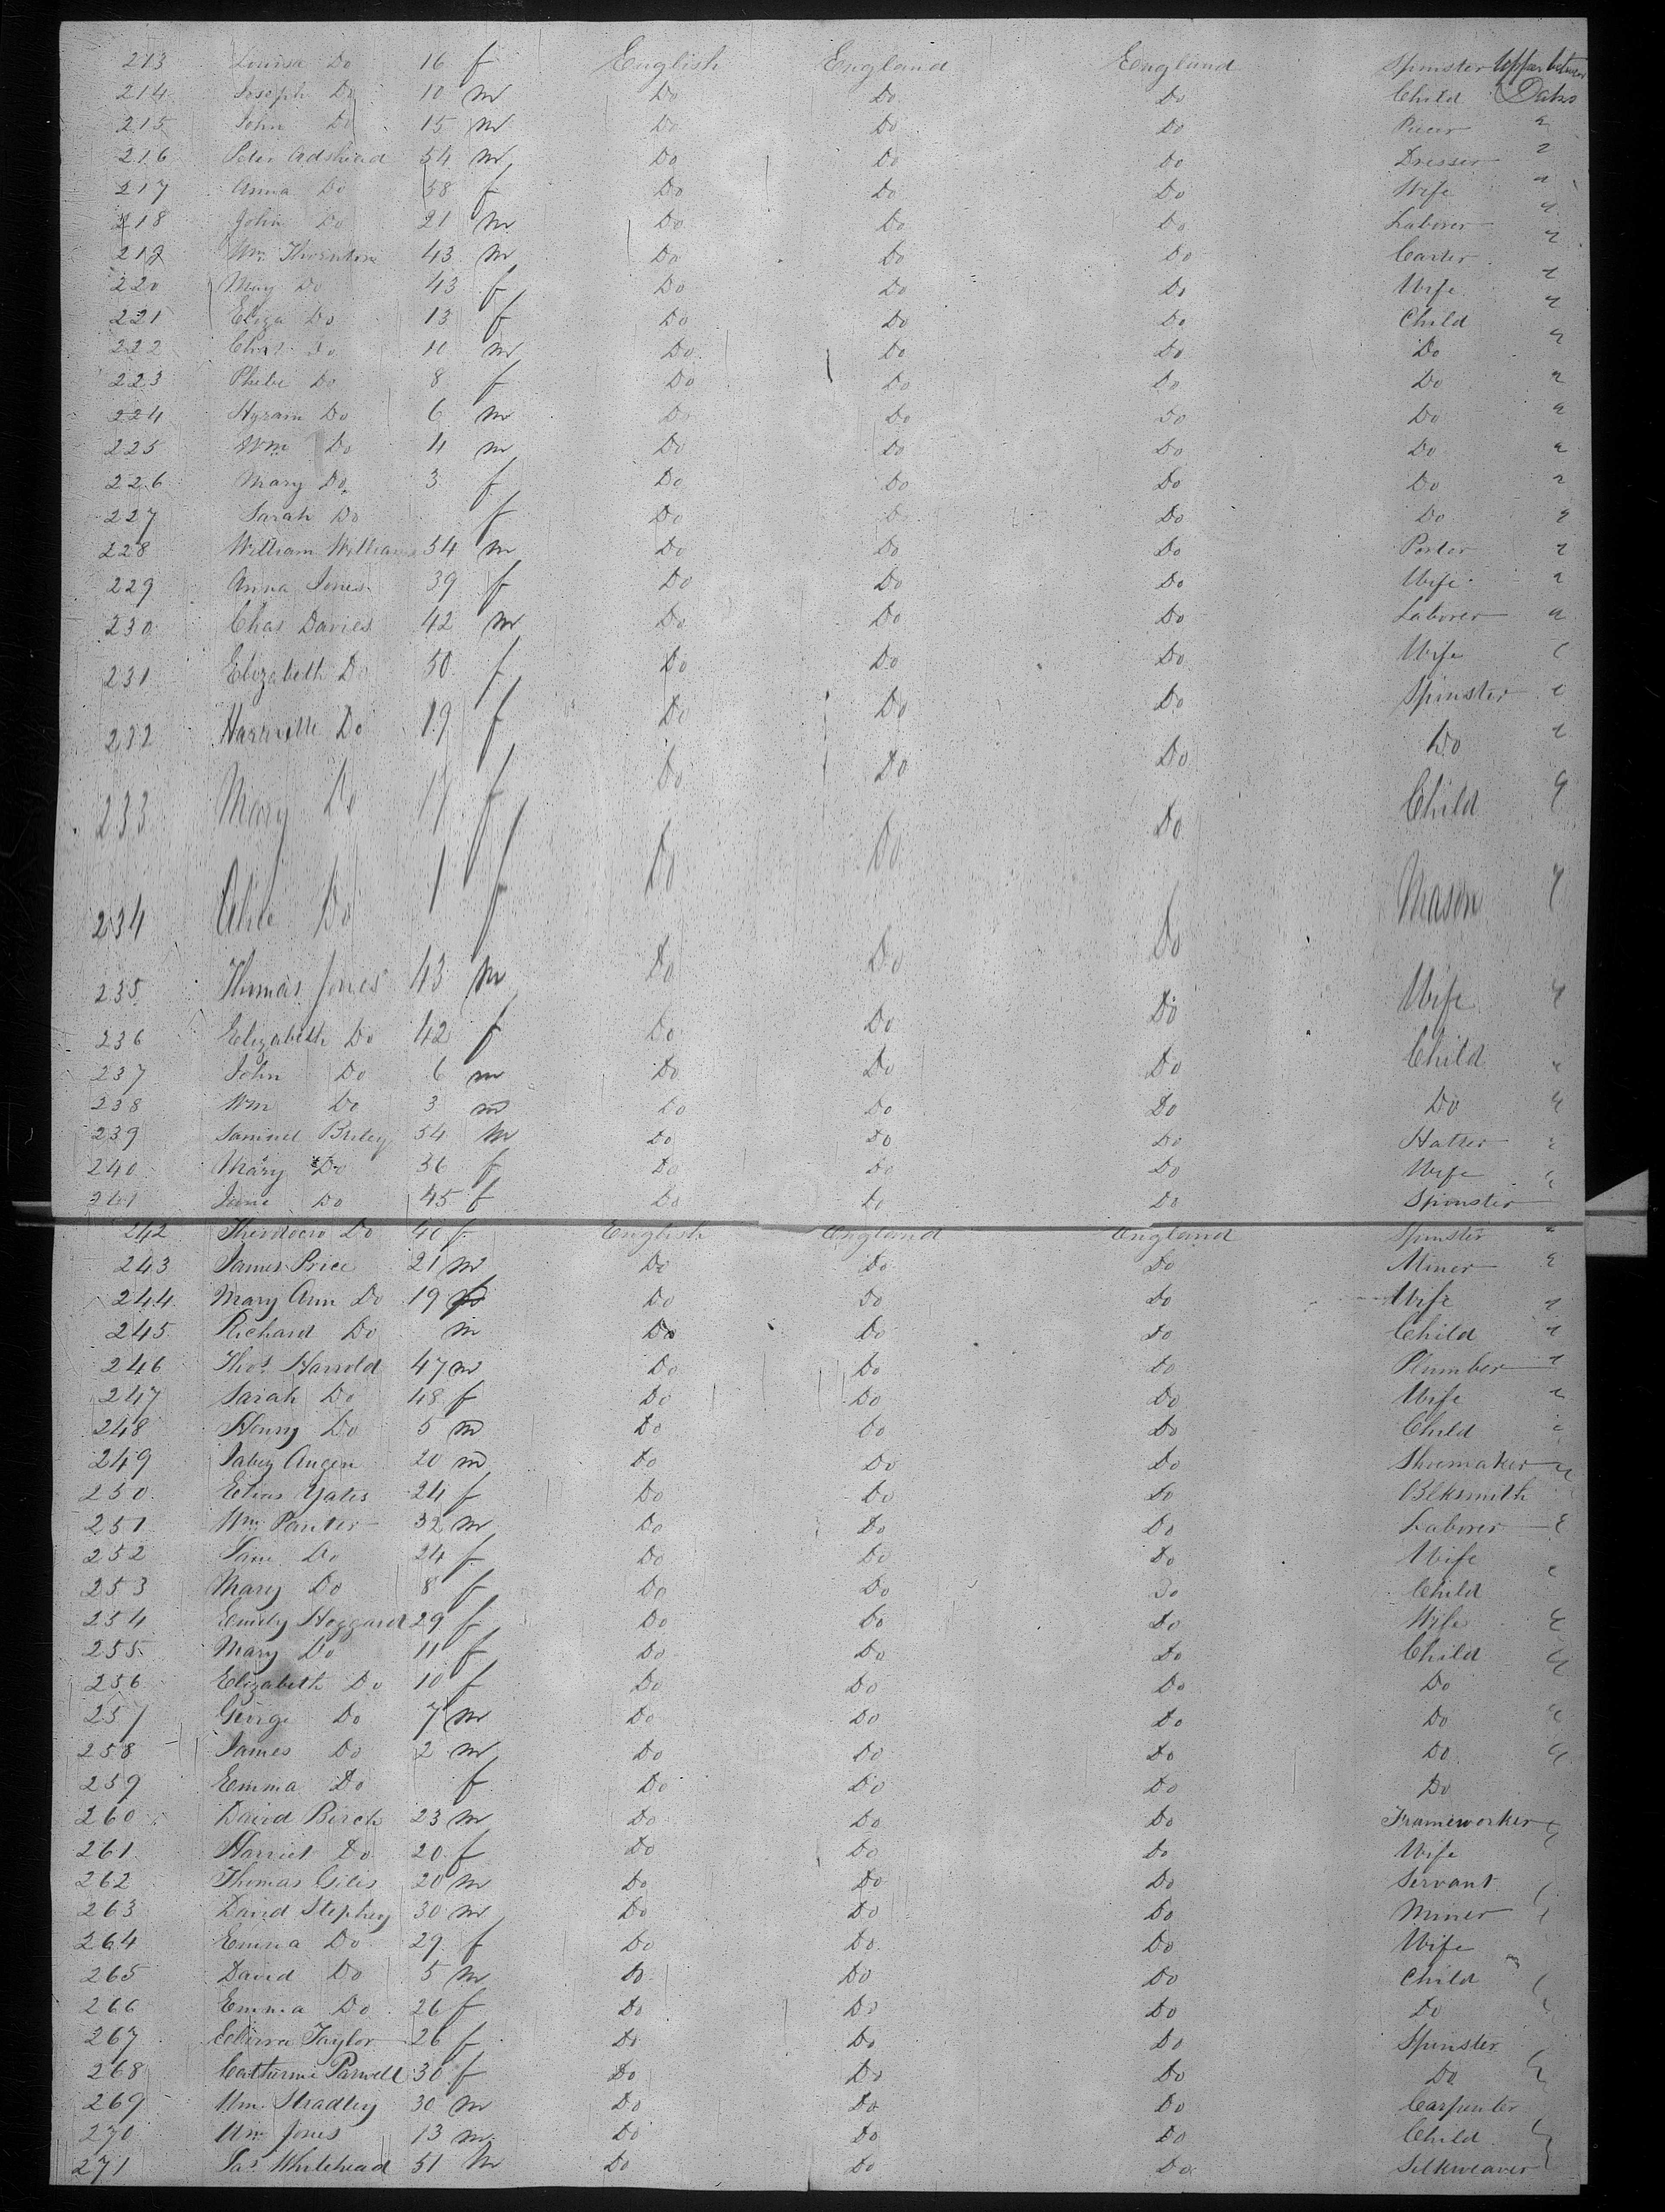 213 Louisa Do 16 f English England England Spinster Upper between
214 Joseph Do 10 m Do Do Do Child Decks
215 John Do 15 m Do Do Do Piecer "
216 Peter Adshead 54 m Do Do Do Dresser "
217 Anna Do 58 f Do Do Do Wife "
218 John Do 21 m Do Do Do Laborer "
219 Wm Thornton 43 m Do Do Do Carter "
220 May Do 43 f Do Do Do Wife "
221 Eliza Do 13 f Do Do Do Child "
222 Chas Do 11 m Do Do Do Do "
223 Phebe Do 8 f Do Do Do Do "
224 Hyram Do 6 m Do Do Do Do "
225 Wm Do 4 m Do Do Do Do "
226 Mary Do 3 f Do Do Do Do "
227 Sarah Do f Do Do Do Do "
228 William Williams 54 m Do Do Do Porter "
229 Anna Jones 39 f Do Do Do Wife "
230 Chas Davies 42 m Do Do Do Laborer "
231 Elizabeth Do 50 f Do Do Do Wife "
232 Do 19 f Do Do Do Spinster "
233 Mary Do 17 f Do Do Do Do "
234 Alice Do 1 f Do Do Do Child "
235 Thomas Jones 43 m Do Do Do Mason "
236 Elizabeth Do 42 f Do Do Do Wife "
237 John Do 6 m Do Do Do Child "
238 Wm Do 3 m Do Do Do Do "
239 Samuel Briley 54 m Do Do Do Hatter "
240 Mary Do 56 f Do Do Do Wife "
241 Jane Do 45 f Do Do Do Spinster
242 Do 40 f English England England Spinster "
243 James Price 21 m Do Do Do Miner "
244 Mary Ann Do 19 f Do Do Do Wife "
245 Richard Do m Do Do Do Child "
246 Thos Harrold 47 m Do Do Do Plumber "
247 Sarah Do 48 f Do Do Do Wife "
248 Henry Do 5 m Do Do Do Child "
249 Jabez 20 m Do Do Do Shoemaker "
250 Yates 24 f Do Do Do Blksmith "
251 Wm Panter 32 m Do Do Do Laborer "
252 Jane Do 24 f Do Do Do Wife "
253 Mary Do 8 f Do Do Do Child
254 Emily Hoggard 29 f Do Do Do Wife "
255 Mary Do 11 f Do Do Do Child "
256 Elizabeth Do 10 f Do Do Do Do
257 George Do 7 m Do Do Do Do "
258 James Do 2 m Do Do Do Do "
259 Emma Do f Do Do Do Do
260 David Birch 23 m Do Do Do Frameworker "
261 Harriet Do 20 f Do Do Do Wife
262 Thomas Giles 20 m Do Do Do Servant
263 David Stephens 30 m Do Do Do Miner "
264 Emma Do 29 f Do Do Do Wife
265 David Do 5 m Do Do Do Child "
266 Emma Do 26 f Do Do Do Do "
267 Taylor 26 f Do Do Do Spinster
268 Catherine Parwell 30 f Do Do Do Do "
269 Wm Stradley 30 m Do Do Do Carpenter
270 Wm Jones 13 m Do Do Do Child "
271 Jas Whitehead 51 m Do Do Do Silkweaver